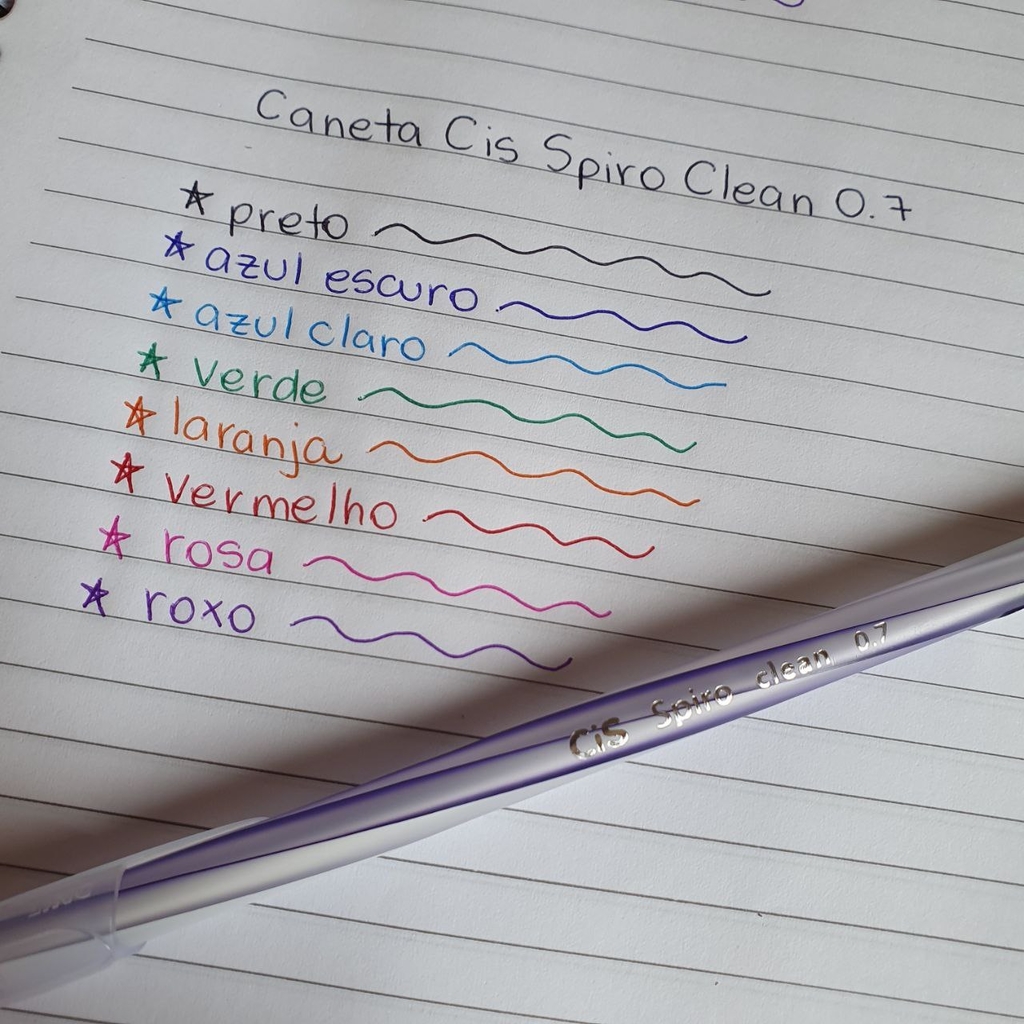 Caneta Cis Spiro Clean 0.7
★ preto
★ azul escuro
★ azul claro
★ verde
★ laranja
★ vermelho
★ rosa
★ roxo
CiS Spiro clean 0.7